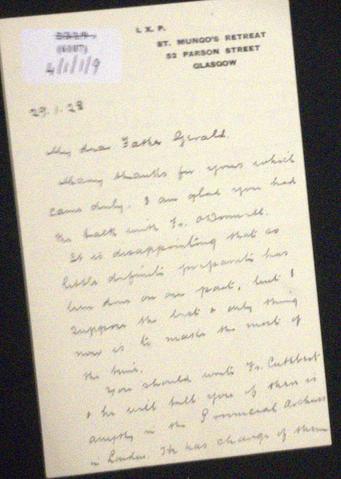 4/1/1/9
I. X. P.
ST. MUNGO'S RETREAT
52 PARSON STREET
GLASGOW
29.1.28
My dear Father Gerald.
Many thanks for yours which
came duly. I am glad you had
the talk with Fr. O'Donnell.
It is disappointing that so
little definite preparation has
been done on our part, but I
suppose the best & only thing
now is to make the most of
the time.
You should write Fr. Cuthbert
& he will tell you if there is
anything in the Provincial Archives
in London. He has charge of them